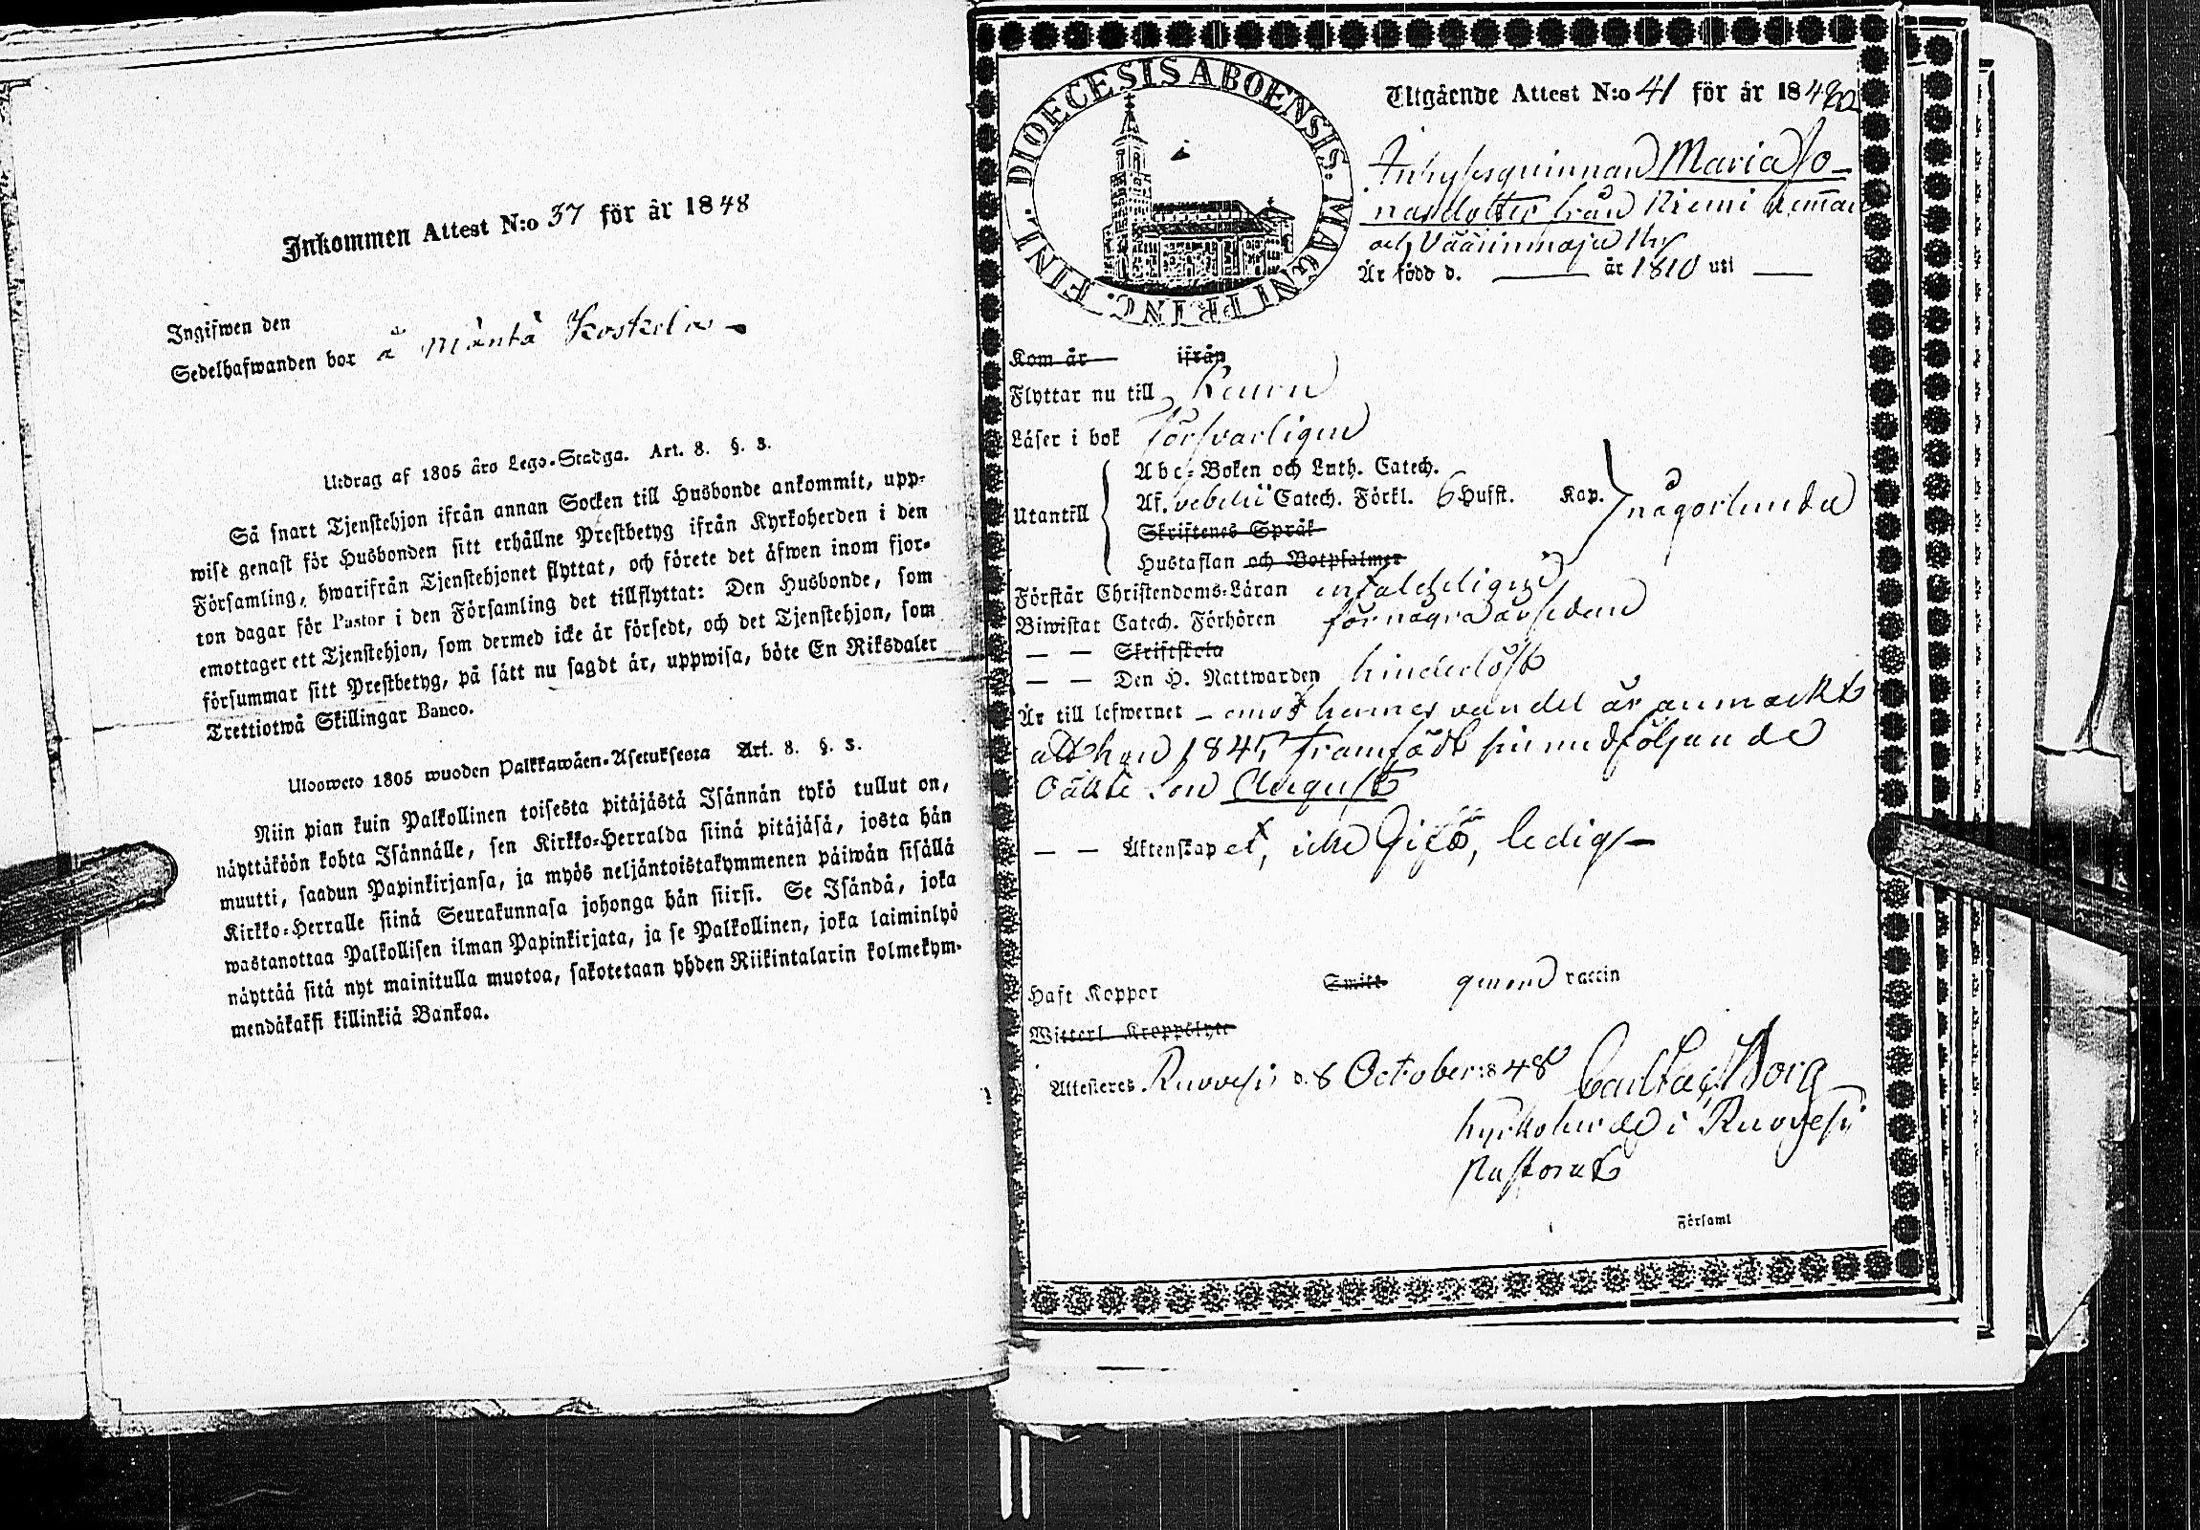 Inkommen Attest N:o 37 för år 1848
Ingifwen den
Sedelhafwanden bor å Mäntä Koskela
Utdrag af 1805 års Lego-Stadga. Art. 8. §. 3.
Så snart Tjenstehjon ifrån annan Socken till Husbonde ankommit, upp-
wise genast för Husbonden sitt erhållne Prestbetyg ifrån Kyrkoherden i den
Församling, hwarifrån Tjenstehjonet flyttat, och förete det äfwen inom fjor-
ton dagar för Pastor i den Församling det tillflyttat: Den Husbonde, som
emottager ett Tjenstehjon, som dermed icke är försedt, och det Tjenstehjon, som
försummar sitt Prestbetyg, på sätt nu sagdt är, uppwisa, böte En Riksdaler
Trettiotwå Skillingar Banco.
Ulosweto 1805 wuoden Palkkawäen-Asetuksesta Art. 8. §. 3.
Niin pian kuin Palkollinen toisesta pitäjästä Isännän tykö tullut on,
näyttäköön kohta Isännälle, sen Kirkko-Herralda siinä pitäjäsä, josta hän
muutti, saadun Papinkirjansa, ja myös neljäntoistakymmenen päiwän sisällä
Kirkko-Herralle siinä Seurakunnasa johonga hän siirsi. Se Isändä, joka
wastanottaa Palkollisen ilman Papinkirjata, ja se Palkollinen, joka laiminlyö
näyttää sitä nyt mainitulla muotoa, sakotetaan yhden Riikintalarin kolmekym-
mendäkaksi killinkiä Bankoa.
DIOECESIS ABOENSIS. MAGNI PRINC. FINL.
Utgående Attest N:o 41 för år 1848
Inhysesquinnan Maria Jo-
nasdotter från Niemi hemman
och Väärinmaja by
Är född d. år 1810 uti
Kom år ifrån
Flyttar nu till Keuru
Läser i bok försvarligen
Abc-Boken och Luth. Catech.
Utantill Af. Svebelii Catech. Förkl. 6 Husst. Kap. någorlunda
Skriftenes Språk
Hustaflan och Botpsalmer
Förstår Christendoms-Läran enfaldeligen
Biwistat Catech. Förhören för några år sedan
— — Skriftskola
— — Den H. Nattwarden hinderlöst
Är till lefwernet – emot hennes vandel är anmärkt
att hon 1845 framfödt sin medföljande
oäkte son August
— — Äktenskapet, icke Gift, ledig –
Haft Koppor Smitt. genom vaccin
Witterl. Kroppslyte
Attesteres Ruovesi d. 8 October 1848 Carl Gust. Borg
kyrkoherde i Ruovesi
Pastorat
Församl